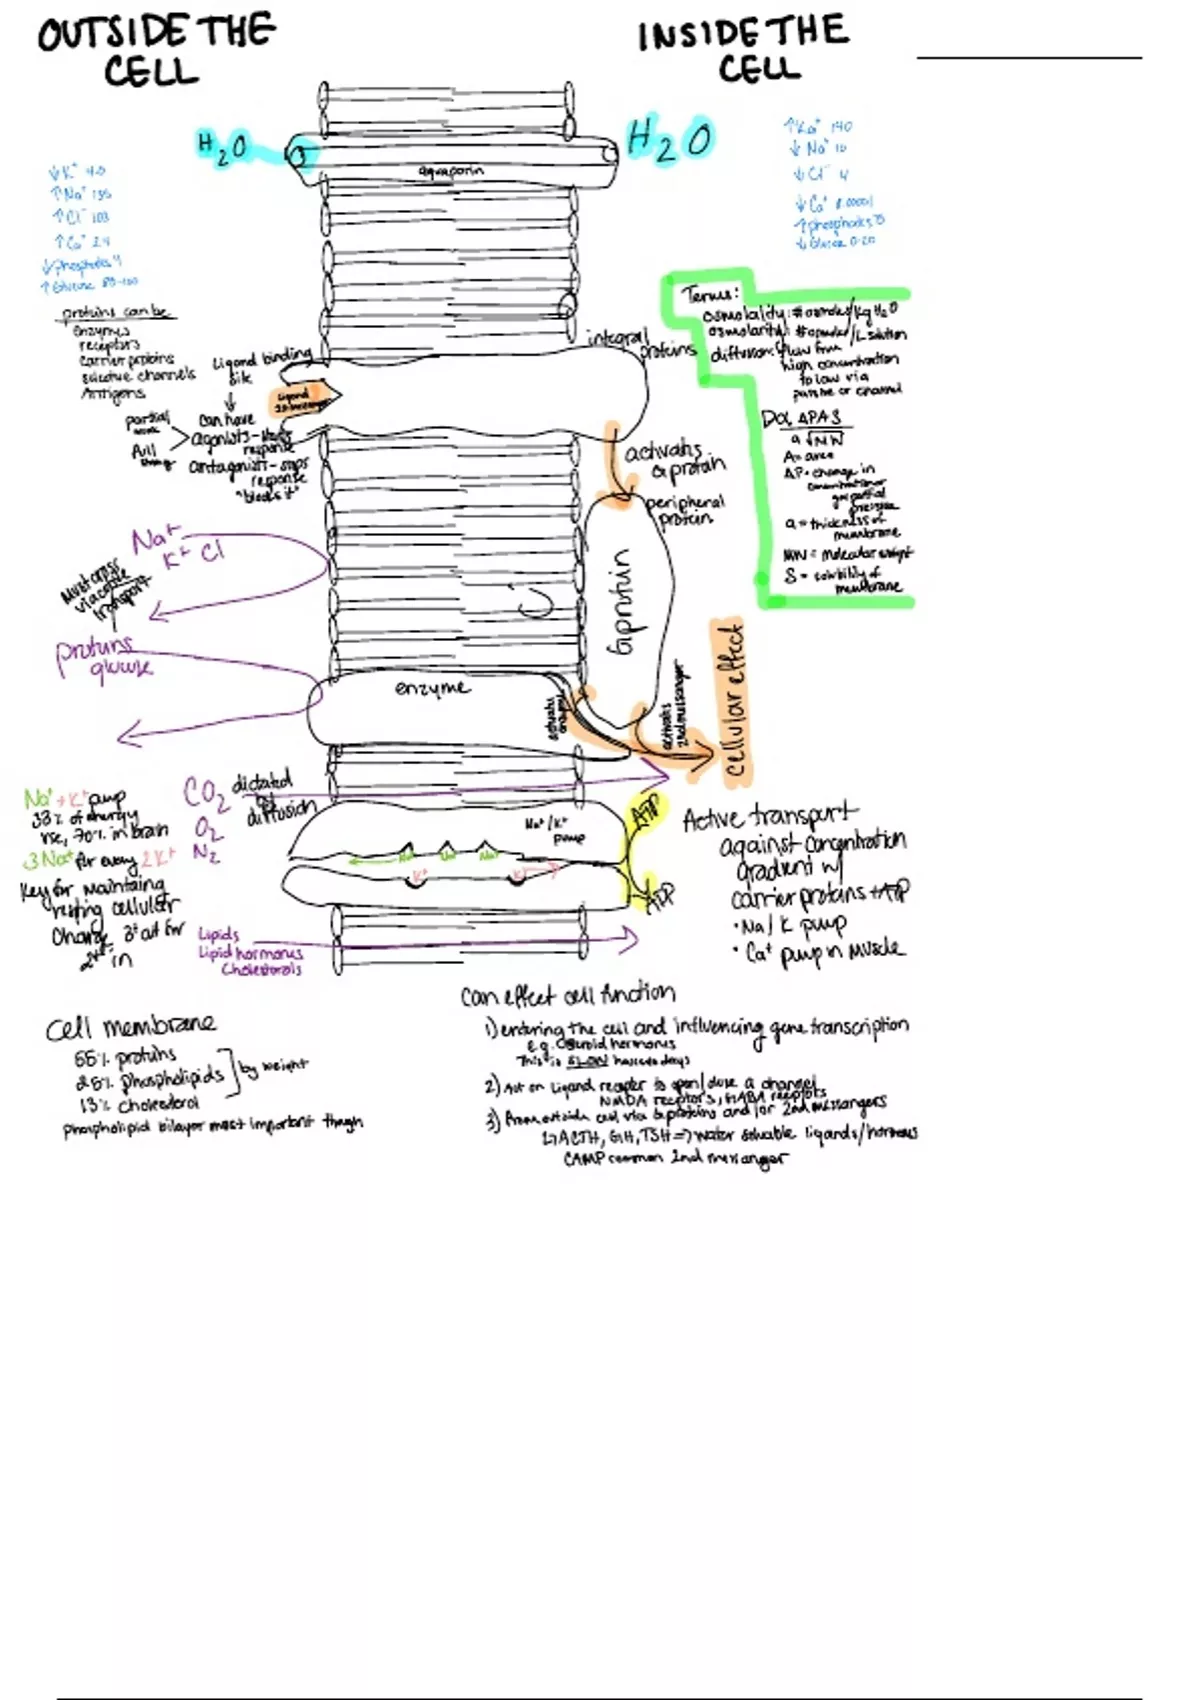 OUTSIDE THE
CELL
INSIDE THE
CELL
H2O
H2O
aquaporin
↓K+ 4.0
↑Na+ 135
↑Cl- 103
↑Ca+ 2.4
↓phosphates 4
↑Glucose
140
↓Na+ 10
↓Cl- 4
↓Ca+ 0.0001
↑phosphates
↓Glucose 0-20
proteins can be
enzymes
receptors
carrier proteins
selective channels
Antigens
Ligand binding
site
can have
agonists-
response
antagonists- stops
response
"blocks it"
partial
full
Ligand
integral
proteins
Terms:
osmolality: # osmoles/kg H2O
osmolarity: # osmoles/L solution
diffusion: flow from
high concentration
to low via
passive or channel
Dα ΔPAS
a√MW
A= area
ΔP= change in
concentration or
gas partial
pressure
a = thickness of
membrane
MW = molecular weight
S = solubility of
membrane
activates
G protein
peripheral
protein
Gprotein
Na+
K+ Cl
Must cross
via
transport
proteins
glucose
enzyme
activates
enzyme
activates
2nd messanger
cellular effect
Na+ + K+ pump
33% of energy
use, 70% in brain
3 Na+ for every 2K+
Key for maintaing
resting cellular
Charge 3+ out for
2+ in
CO2
O2
N2
dictated
by
diffusion
Na+/K+
pump
Na+ Na+ Na+
K+ K+
ATP
ADP
Lipids
Lipid hormones
Cholesterols
Active transport
against concentration
gradient w/
carrier proteins + ATP
• Na/K pump
• Ca+ pump in Muscle
cell membrane
55% proteins
25% phospholipids
13% cholesterol
by weight
phospholipid bilayer most important though
can effect cell function
1) entering the cell and influencing gene transcription
e.g. steroid hormones
This is SLOW
2) Act on Ligand receptor to open/close a channel
NMDA receptors, GABA receptors
3) From outside cell via G proteins and/or 2nd messangers
↳ ACTH, GH, TSH => water soluable ligands/hormones
CAMP common 2nd messanger